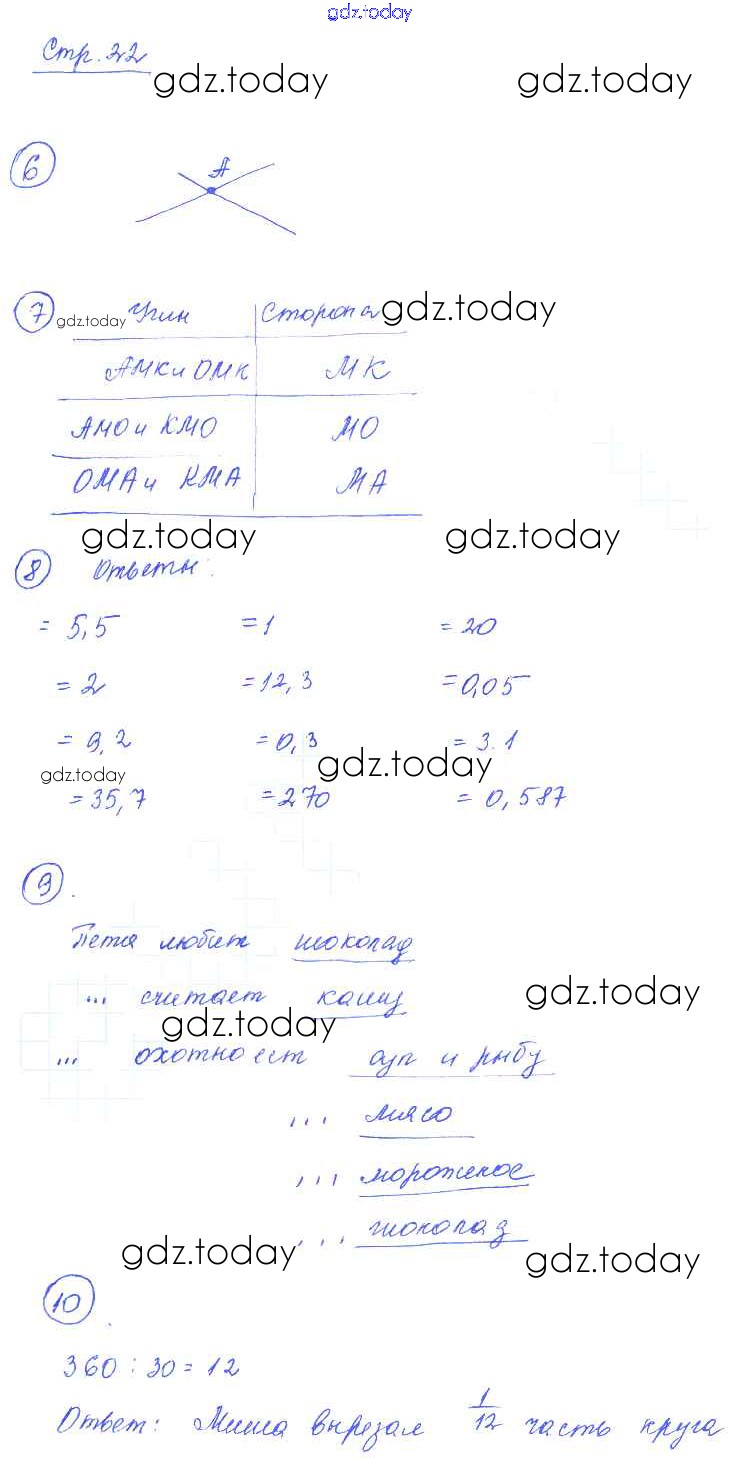 gdz.today
Стр. 22
gdz.today gdz.today
6 А
7 gdz.today Углы Сторона gdz.today
АМК и ОМК МК
АМО и КМО МО
ОМА и КМА МА
gdz.today gdz.today
8 Ответы:
= 5,5 = 1 = 20
= 2 = 12,3 = 0,05
= 9,2 = 0,3 = 3.1
gdz.today gdz.today
= 35,7 = 270 = 0,587
9.
Петя любит шоколад
... считает кашу gdz.today
gdz.today
... охотно ест суп и рыбу
... мясо
... мороженое
... шоколад
gdz.today gdz.today
10.
360 : 30 = 12
Ответ: Миша вырезал 1/12 часть круга